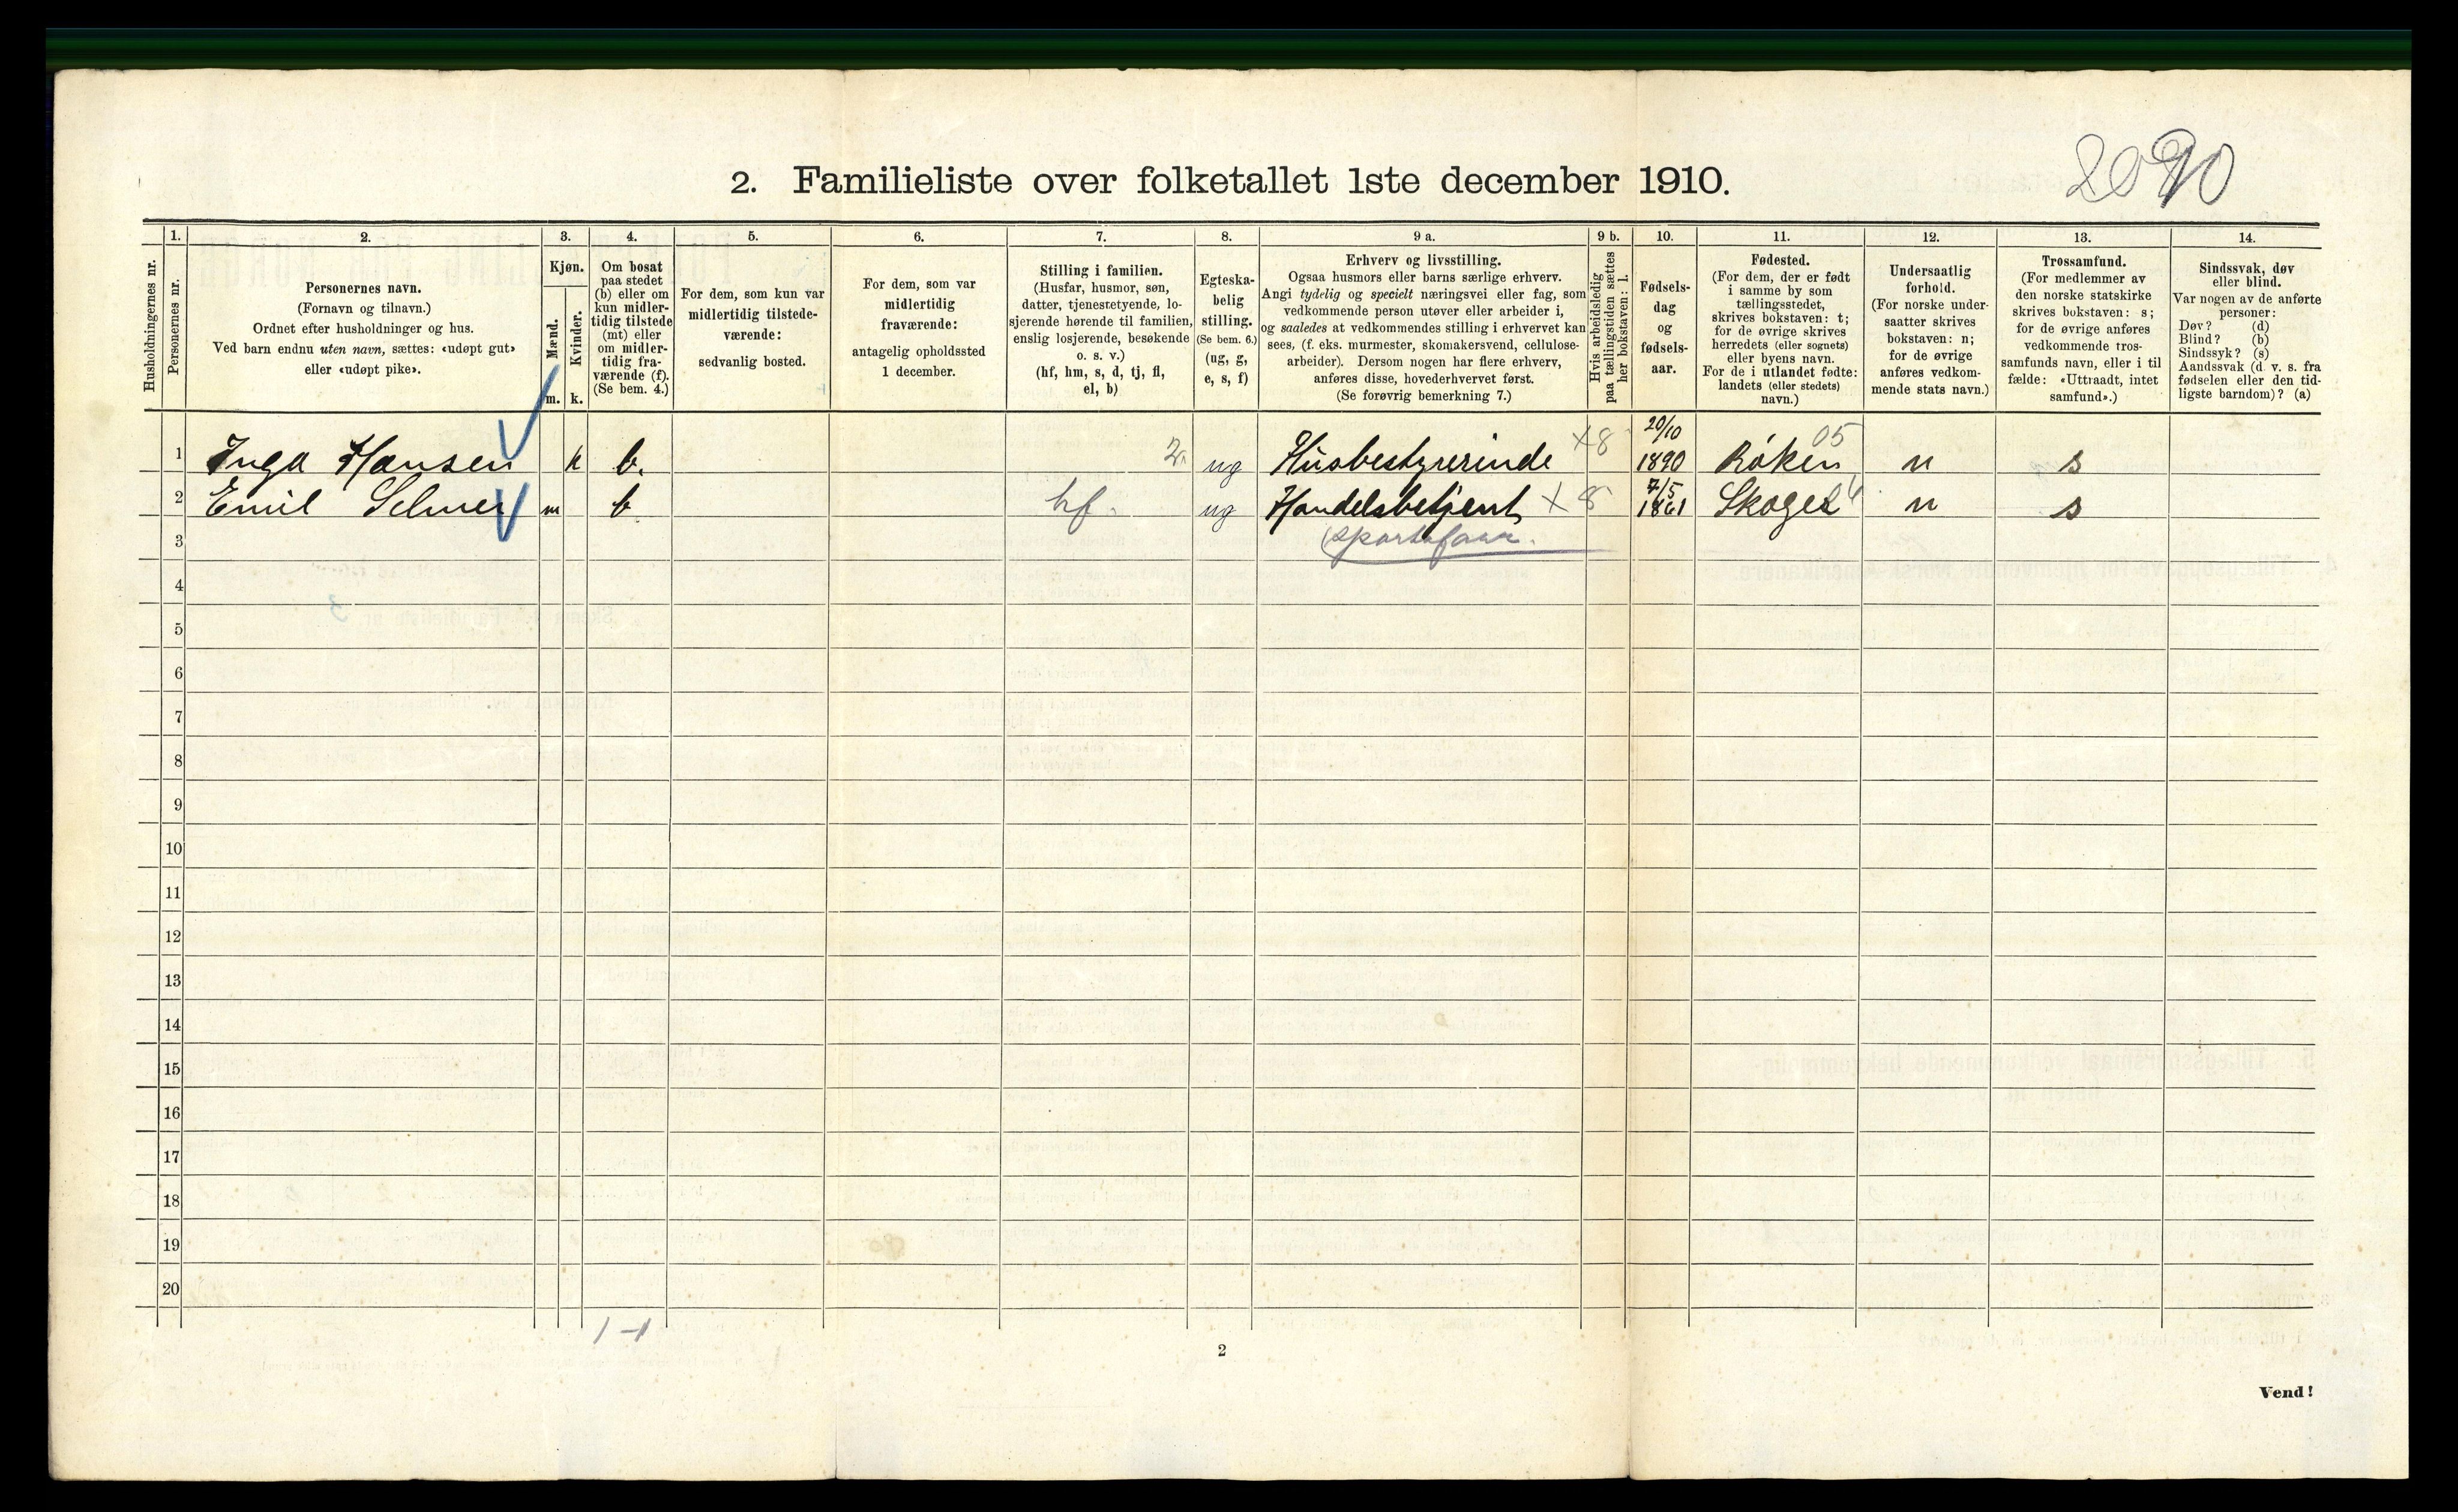 2090
2. Familieliste over folketallet 1ste december 1910.
Husholdningernes nr.
1.
Personernes nr.
2.
Personernes navn.
(Fornavn og tilnavn.)
Ordnet efter husholdninger og hus.
Ved barn endnu uten navn, sættes: «udøpt gut»
eller «udøpt pike».
3.
Kjøn.
Mænd.
Kvinder.
m. k.
4.
Om bosat
paa stedet
(b) eller om
kun midler-
tidig tilstede
(mt) eller
om midler-
tidig fra-
værende (f).
(Se bem. 4.)
5.
For dem, som kun var
midlertidig tilstede-
værende:
sedvanlig bosted.
6.
For dem, som var
midlertidig
fraværende:
antagelig opholdssted
1 december.
7.
Stilling i familien.
(Husfar, husmor, søn,
datter, tjenestetyende, lo-
sjerende hørende til familien,
enslig losjerende, besøkende
o. s. v.)
(hf, hm, s, d, tj, fl,
el, b)
8.
Egteska-
belig
stilling.
(Se bem. 6.)
(ug, g,
e, s, f)
9 a.
Erhverv og livsstilling.
Ogsaa husmors eller barns særlige erhverv.
Angi tydelig og specielt næringsvei eller fag, som
vedkommende person utøver eller arbeider i,
og saaledes at vedkommendes stilling i erhvervet kan
sees, (f. eks. murmester, skomakersvend, cellulose-
arbeider). Dersom nogen har flere erhverv,
anføres disse, hovederhvervet først.
(Se forøvrig bemerkning 7.)
9 b.
Hvis arbeidsledig
paa tællingstiden sættes
her bokstaven: l.
10.
Fødsels-
dag
og
fødsels-
aar.
11.
Fødested.
(For dem, der er født
i samme by som
tællingsstedet,
skrives bokstaven: t;
for de øvrige skrives
herredets (eller sognets)
eller byens navn.
For de i utlandet fødte:
landets (eller stedets)
navn.)
12.
Undersaatlig
forhold.
(For norske under-
saatter skrives
bokstaven: n;
for de øvrige
anføres vedkom-
mende stats navn.)
13.
Trossamfund.
(For medlemmer av
den norske statskirke
skrives bokstaven: s;
for de øvrige anføres
vedkommende tros-
samfunds navn, eller i til-
fælde: «Uttraadt, intet
samfund».)
14.
Sindssvak, døv
eller blind.
Var nogen av de anførte
personer:
Døv? (d)
Blind? (b)
Sindssyk? (s)
Aandssvak (d. v. s. fra
fødselen eller den tid-
ligste barndom)? (a)
1 Inga Hansen k b. 2. ug Husbestyrerinde X8 20/10 1890 Röken 05 n s
2 Emil Selmer m b hf. ug Handelsbetjent X 8 7/5 1861 Skoger n s
3
4
5
6
7
8
9
10
11
12
13
14
15
16
17
18
19
20
1-1
2
Vend!